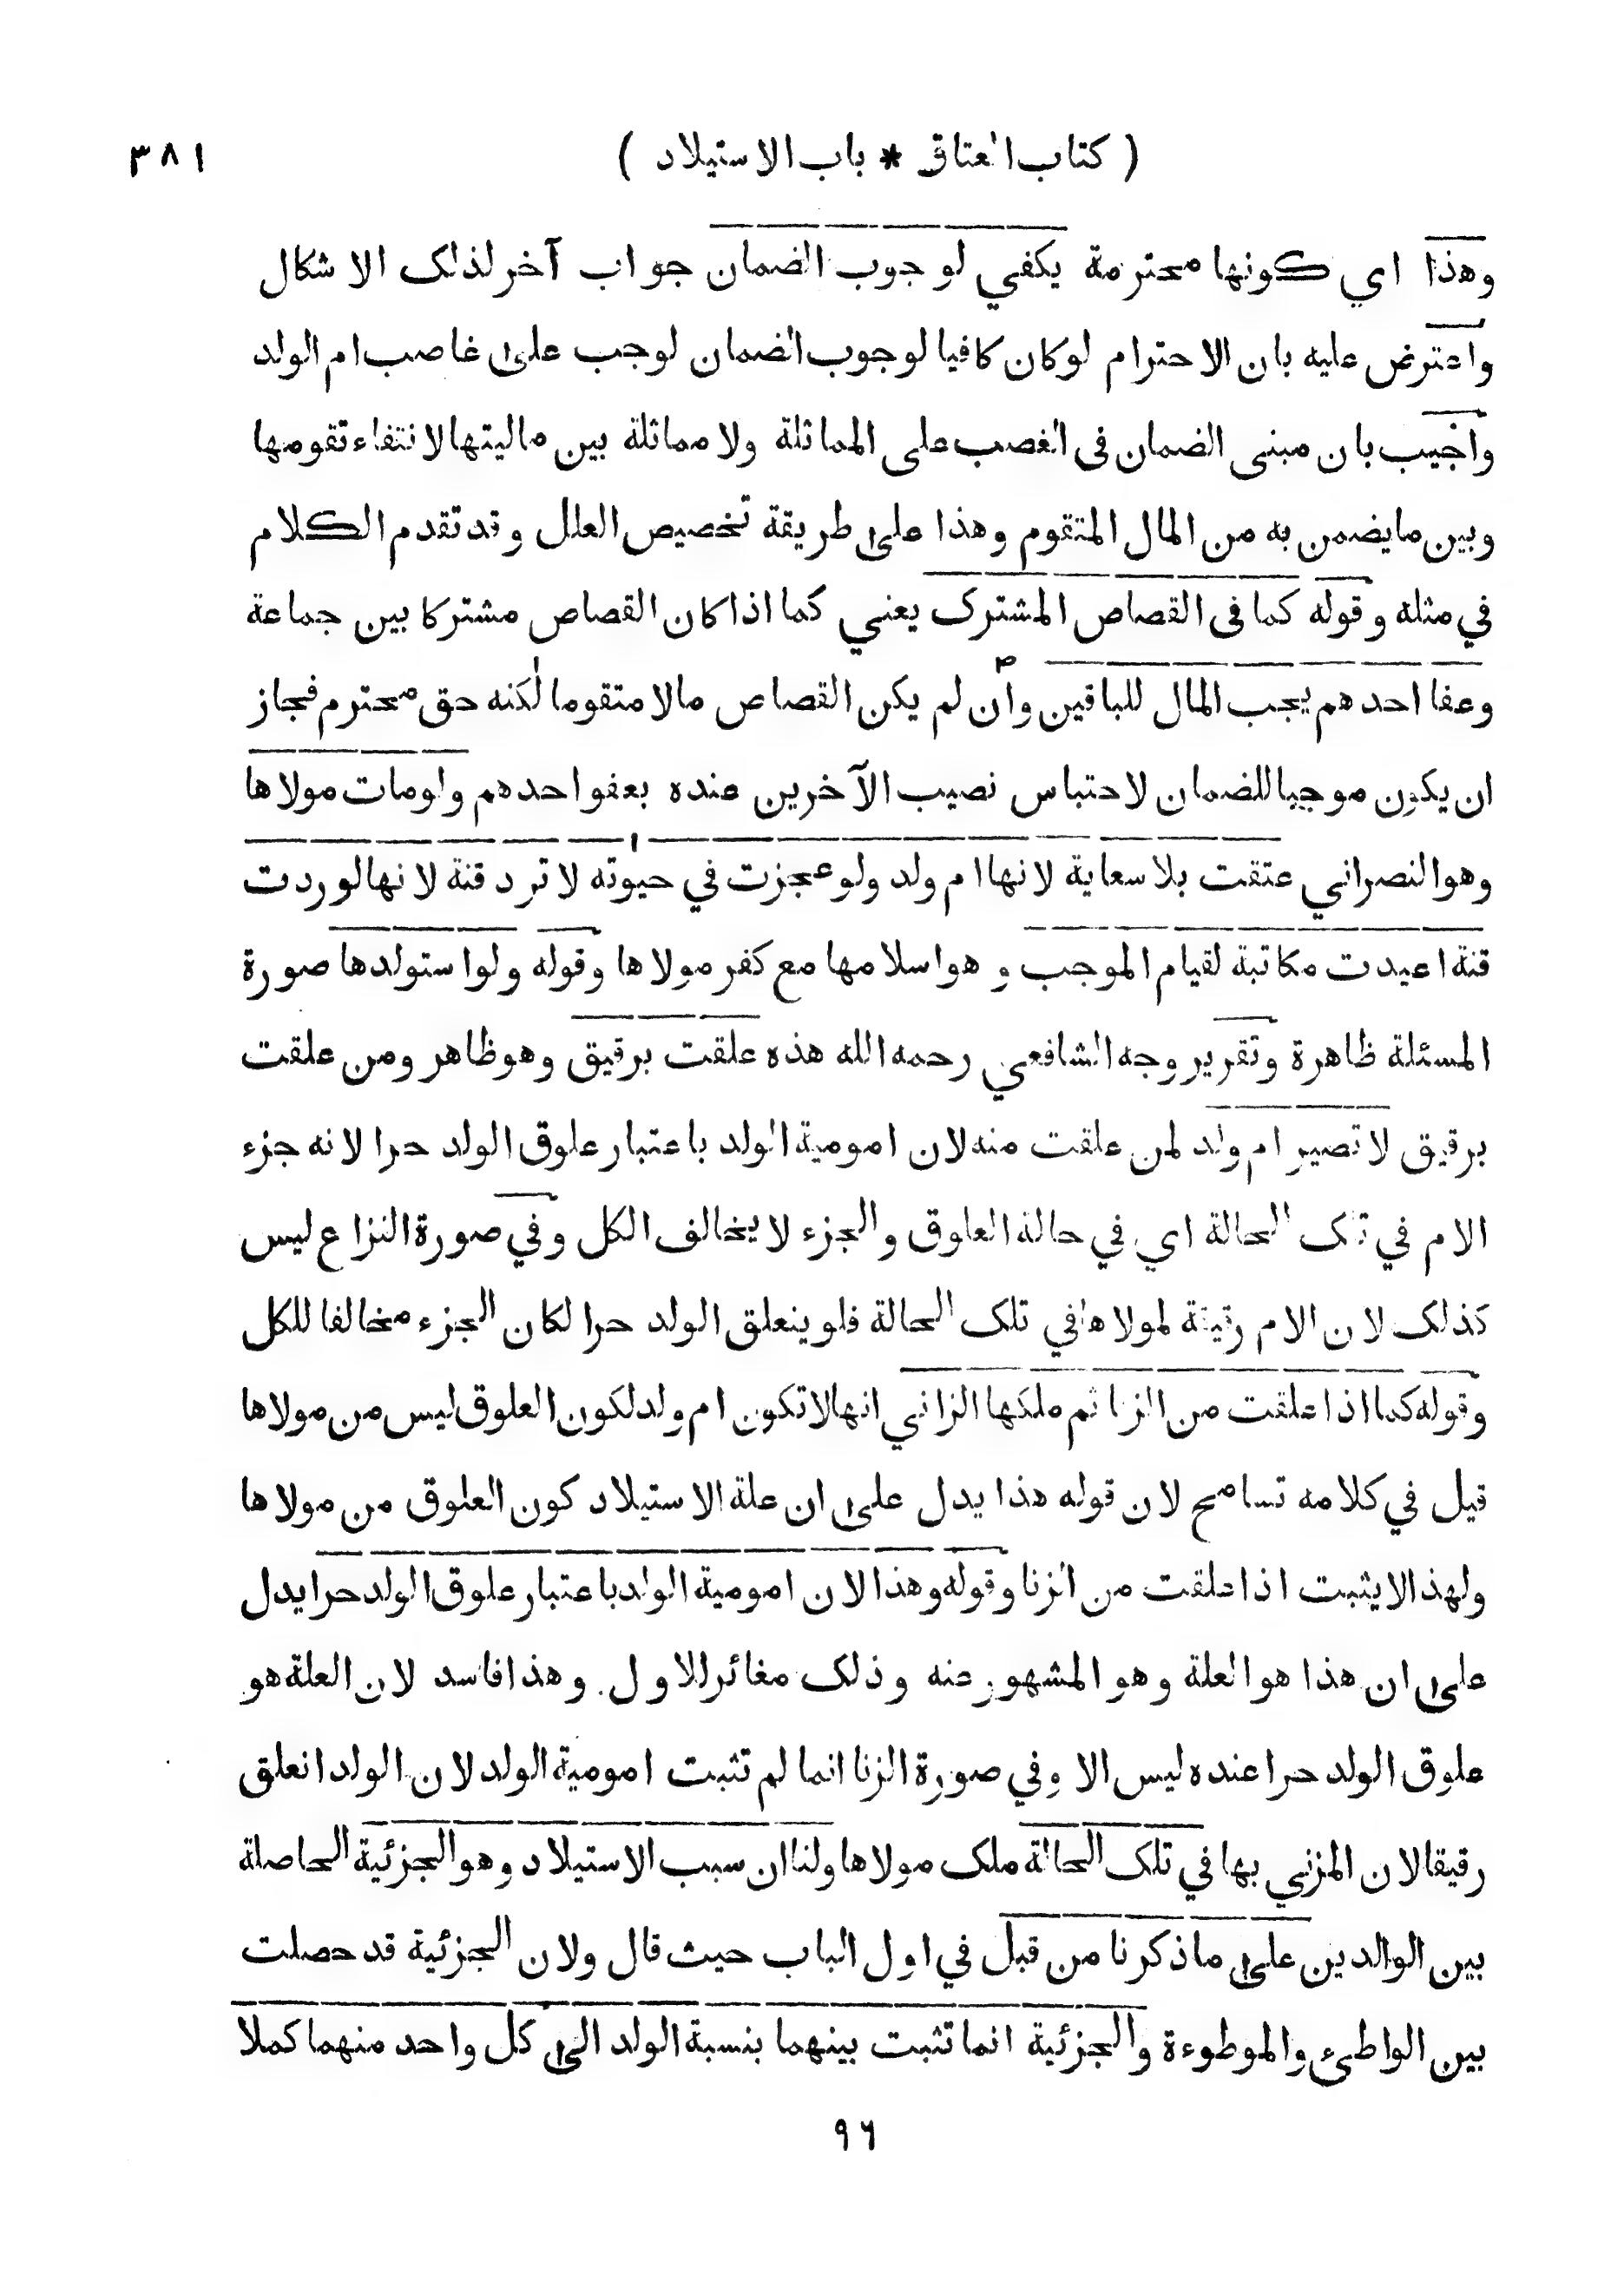 ( كتاب العتاق * باب الاستيلاد ) ٣٨١
وهذا اي كونها محترمة يكفي لوجوب الضمان جواب آخر لذلك الاشكال
واعترض عليه بان الاحترام لو كان كافيا لوجوب الضمان لوجب على غاصب ام الولد
واجيب بان مبنى الضمان فى الغصب على المماثلة ولا مماثلة بين ماليتها لانتفاء تقومها
وبين ما يضمن به من المال المتقوم وهذا على طريقة تخصيص العلل وقد تقدم الكلام
في مثله وقوله كما فى القصاص المشترك يعني كما اذا كان القصاص مشتركا بين جماعة
وعفا احدهم يجب المال للباقين وان لم يكن القصاص مالا متقوما لكنه حق محترم فجاز
ان يكون موجبا للضمان لاحتباس نصيب الآخرين عنده بعفو احدهم ولو مات مولاها
وهو النصراني عتقت بلا سعاية لانها ام ولد ولو عجزت في حيوته لا ترد قنة لانها لو ردت
قنة اعيدت مكاتبة لقيام الموجب وهو اسلامها مع كفر مولاها وقوله ولو استولدها صورة
المسئلة ظاهرة وتقرير وجه الشافعي رحمه الله هذه علقت برقيق وهو ظاهر ومن علقت
برقيق لا تصير ام ولد لمن علقت منه لان امومية الولد باعتبار علوق الولد حرا لانه جزء
الام في تلك الحالة اي في حالة العلوق والجزء لا يخالف الكل وفي صورة النزاع ليس
كذلك لان الام رقيقة لمولاها في تلك الحالة فلو ينعلق الولد حرا لكان الجزء مخالفا للكل
وقوله كما اذا علقت من الزنا ثم ملكها الزاني انها لا تكون ام ولد لكون العلوق ليس من مولاها
قيل في كلامه تسامح لان قوله هذا يدل على ان علة الاستيلاد كون العلوق من مولاها
ولهذا لا يثبت اذا علقت من الزنا وقوله وهذا لان امومية الولد باعتبار علوق الولد حرا يدل
على ان هذا هو العلة وهو المشهور عنه وذلك مغائر للاول وهذا فاسد لان العلة هو
علوق الولد حرا عنده ليس الا وفي صورة الزنا انما لم تثبت امومية الولد لان الولد انعلق
رقيقا لان المزني بها في تلك الحالة ملك مولاها ولنا ان سبب الاستيلاد وهو الجزئية الحاصلة
بين الوالدين على ما ذكرنا من قبل في اول الباب حيث قال ولان الجزئية قد حصلت
بين الواطئ والموطوءة والجزئية انما تثبت بينهما بنسبة الولد الى كل واحد منهما كملا
٩٦